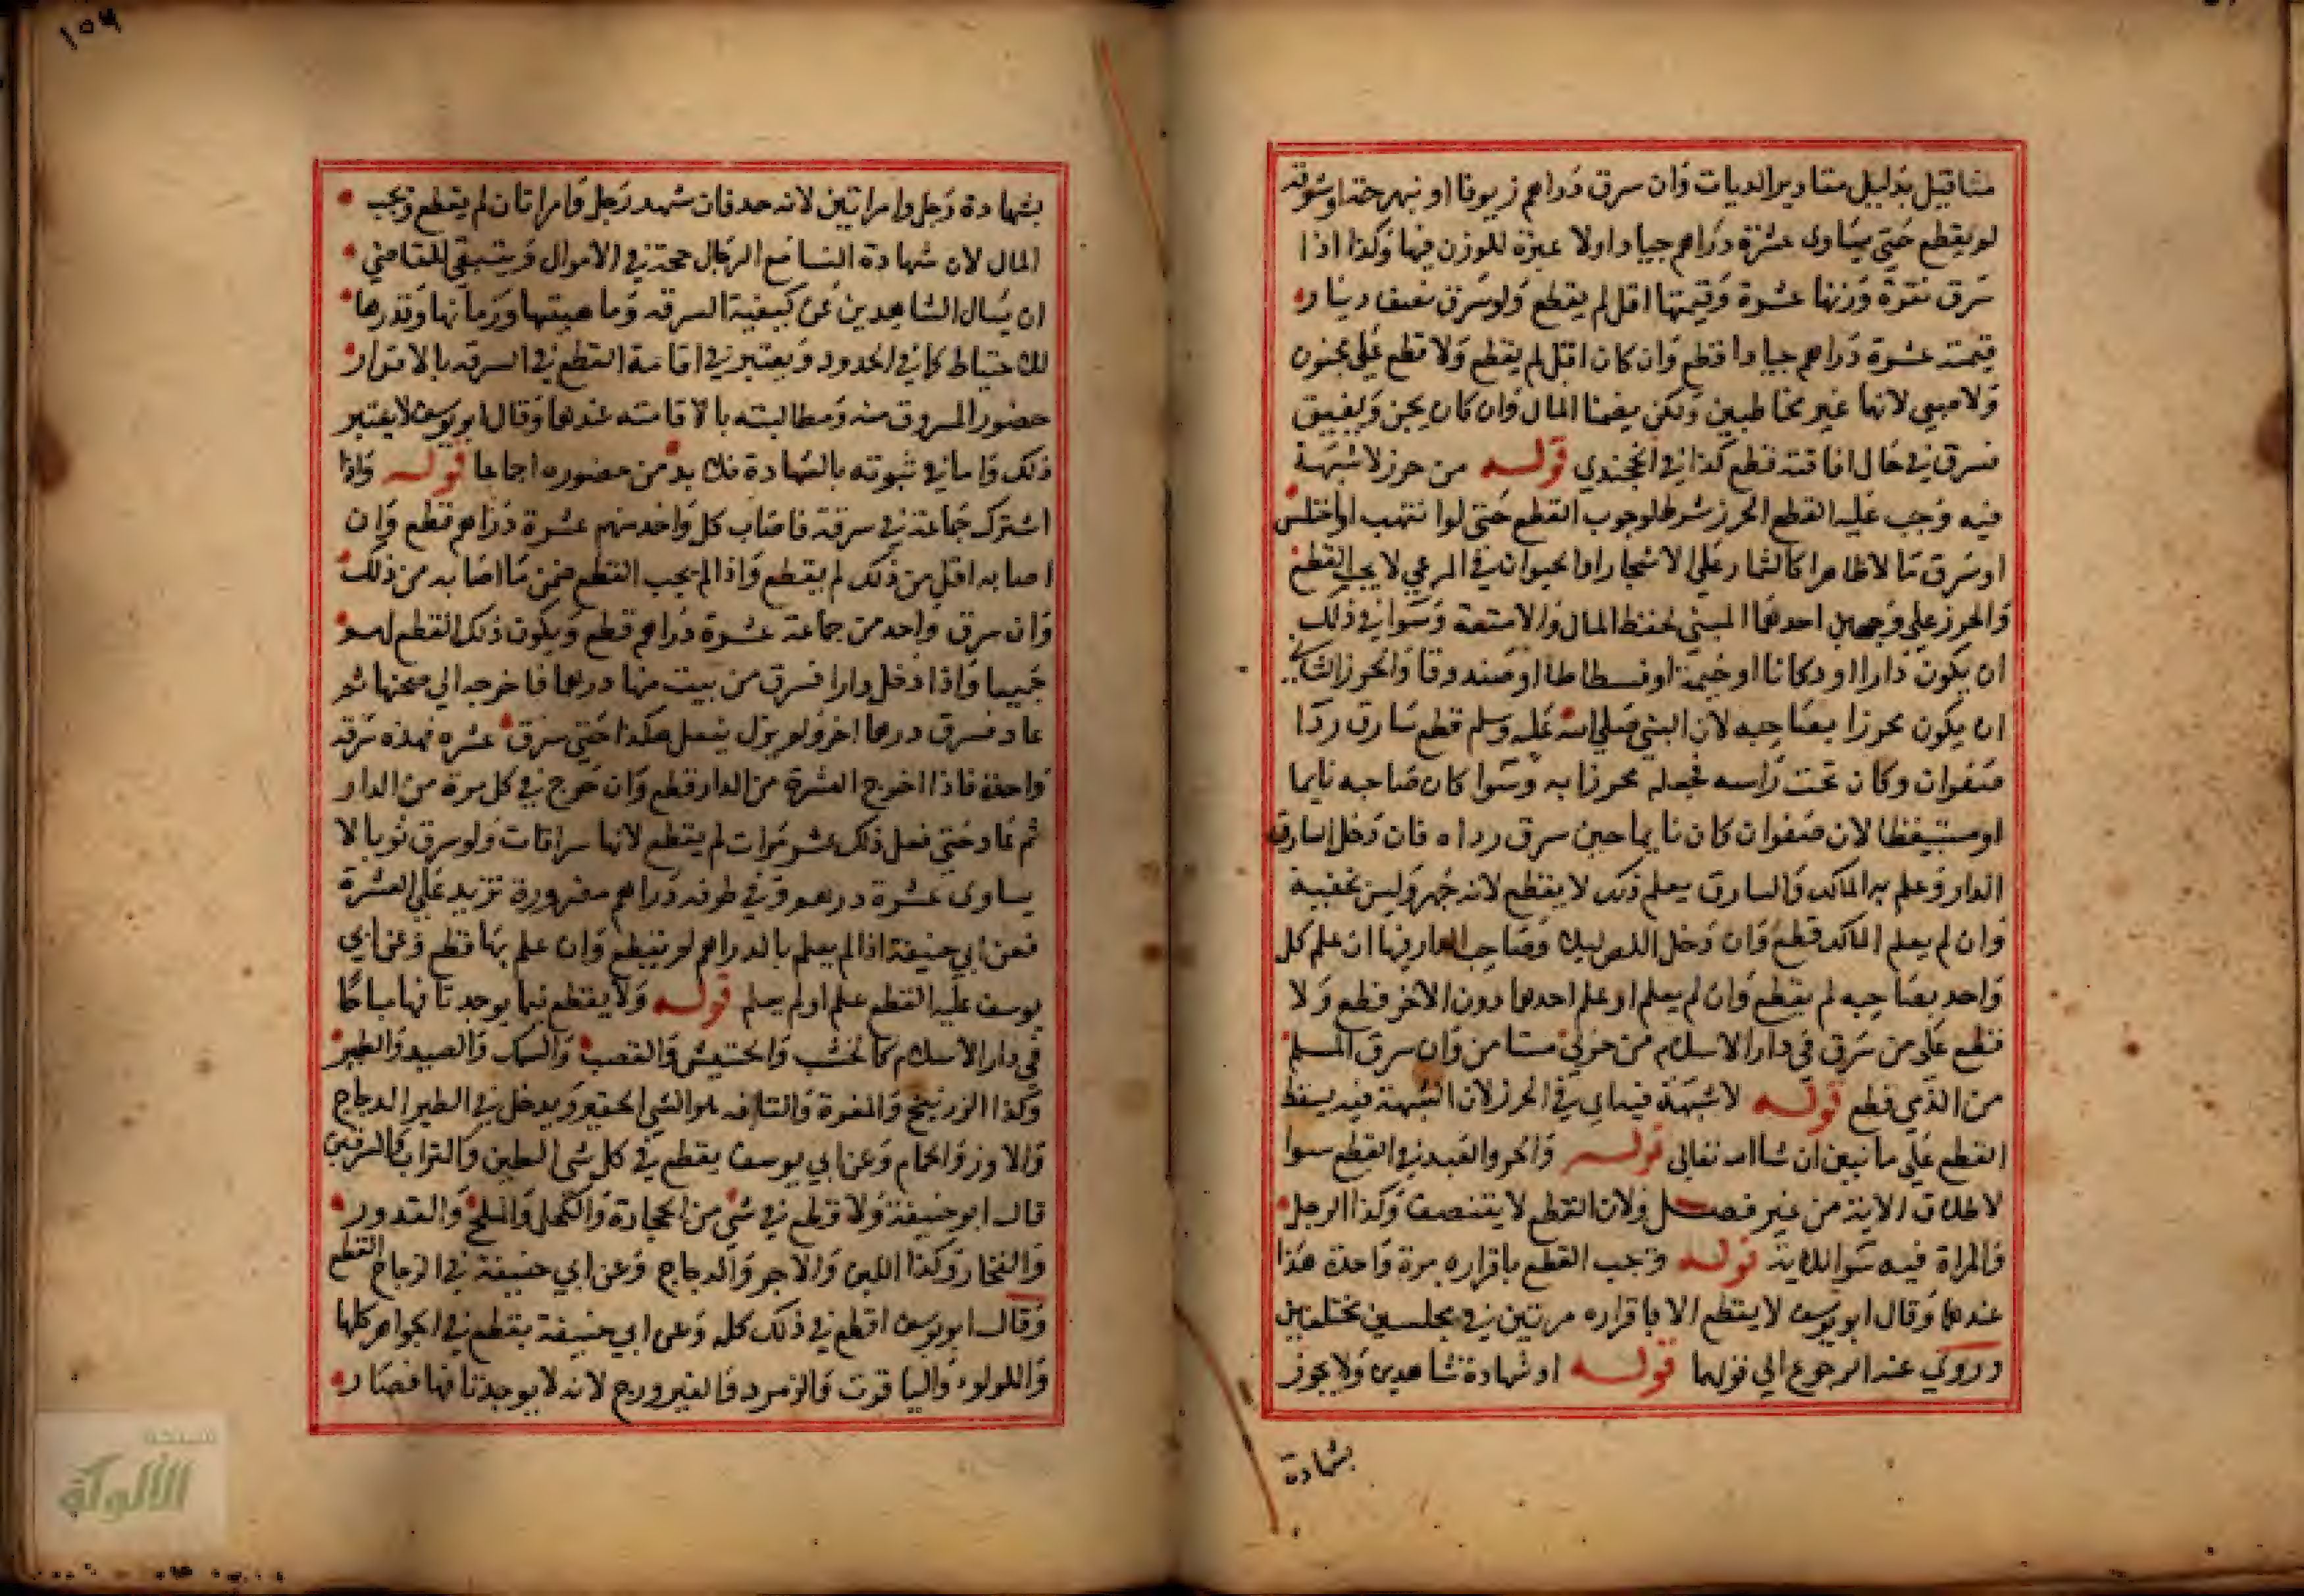 مثاقيل بدليل مقادير الديات وان سرق دراهم زيوفا او نبهرجة او ستوقه
لم يقطع حتي يساوى عشرة دراهم جيادا ولا عبرة للوزن فيها وكذا اذا
سرق نقرة وزنها عشرة وقيمتها اقل لم يقطع ولو سرق نصف دينار
قيمته عشرة دراهم جيادا قطع وان كان اقل لم يقطع ولا قطع علي مجنون
ولا صبي لانهما غير مخاطبين ولكن يضمنا المال وان كان يجن ويفيق
فسرق في حال افاقته قطع كذا في الخجندي قوله من حرز لا شبهة
فيه وجب عليه القطع الحرز شرط لوجوب القطع حتى لو انتهب او اختلس
او سرق مالا ظاهرا كالثمار علي الاشجار او الحيوان في المرعي لا يجب القطع
والحرز علي وجهين احدهما المبني لحفظ المال والامتعة وسوا في ذلك
ان يكون دارا او دكانا او خيمة او فسطاطا او صندوقا والحرز الثاني
ان يكون محرزا بصاحبه لان النبي صلي الله عليه وسلم قطع سارق ردا
صفوان وكان تحت راسه فجعله محرزا به وسوا كان صاحبه نايما
او مستيقظا لان صفوان كان نايما حين سرق رداه فان دخل السارق
الدار وعلم به المالك والسارق يعلم ذلك لا يقطع لانه جهر وليس بخفية
وان لم يعلم المالك قطع وان دخل اللص ليلا وصاحب الدار فيها ان علم كل
واحد بصاحبه لم يقطع وان لم يعلم او علم احدهما دون الاخر قطع ولا
قطع علي من سرق في دار الاسلام من حربي مستامن وان سرق المسلم
من الذمي قطع قوله لا شبهة فيه اي في الحرز لان الشبهة فيه يسقط
القطع علي ما نبين ان شا الله تعالى قوله والحر والعبد في القطع سوا
لاطلاق الاية من غير فصل ولان القطع لا يتنصف وكذا الرجل
والمراة فيه سوا للاية قوله وتجب القطع باقراره مرة واحدة هذا
عندهما وقال ابو يوسف لا يقطع الا باقراره مرتين في مجلسين مختلفين
وروي عنه الرجوع الي قولهما قوله او شهادة شاهدين ولا يجوز
بشهادة
١٥٩
بشهادة رجل وامراتين لانه حد فان شهد رجل وامراتان لم يقطع ويجب
المال لان شهادة النسا مع الرجال حجة في الاموال وينبغي للقاضي
ان يسال الشاهدين عن كيفية السرقه وماهيتها وزمانها وقدرها
للاحتياط كما في الحدود ويعتبر في اقامة القطع في السرقه بالاقرار
حضور المسروق منه ومطالبته بالاقامته عندهما وقال ابو يوسف لا يعتبر
ذلك واما في ثبوته بالشهادة فلا بد من حضوره اجماعا قوله واذا
اشترك جماعة في سرقة فاصاب كل واحد منهم عشرة دراهم قطع وان
اصابه اقل من ذلك لم يقطع واذا لم يجب القطع ضمن ما اصابه من ذلك
وان سرق واحد من جماعة عشرة دراهم قطع ويكون ذلك القطع لهم
جميعا واذا دخل دارا فسرق من بيت منها درهما فاخرجه الي صحنها ثم
عاد فسرق درهما اخر ولم يزل يفعل هكذا حتي سرق عشره فهذه سرقه
واحدة فاذا اخرج العشرة من الدار قطع وان خرج في كل مرة من الدار
ثم عاد حتي فعل ذلك عشر مرات لم يقطع لانها سراقات ولو سرق ثوبا لا
يساوى عشرة درهم وفي طرفه دراهم مضرورة تزيد علي العشرة
فعن ابي حنيفة اذا لم يعلم بالدراهم لم يقطع وان علم بها قطع وعن ابي
يوسف عليه القطع علم او لم يعلم قوله ولا يقطع فيما يوجد تافها مباحا
في دار الاسلام كالخشب والحشيش والقصب والسمك والصيد والطير
وكذا الزرنيخ والمغرة والتافه هو الشي الحقير ويدخل في الطير الدجاج
والاوز والحمام وعن ابي يوسف يقطع في كل شي الا الطين والتراب والسرقين
قال ابو حنيفة ولا قطع في شي من الحجارة والكحل والملح والقدور
والفخار وكذا اللبن والاجر والدجاج وعن ابي حنيفة في الزجاج القطع
وقال ابو يوسف اقطع في ذلك كله وعن ابي حنيفة يقطع في الجواهر كلها
واللولوء والياقوت والزمرد والفيروزج لانه لا يوجد تافها فصار
شبكة
الألوكة